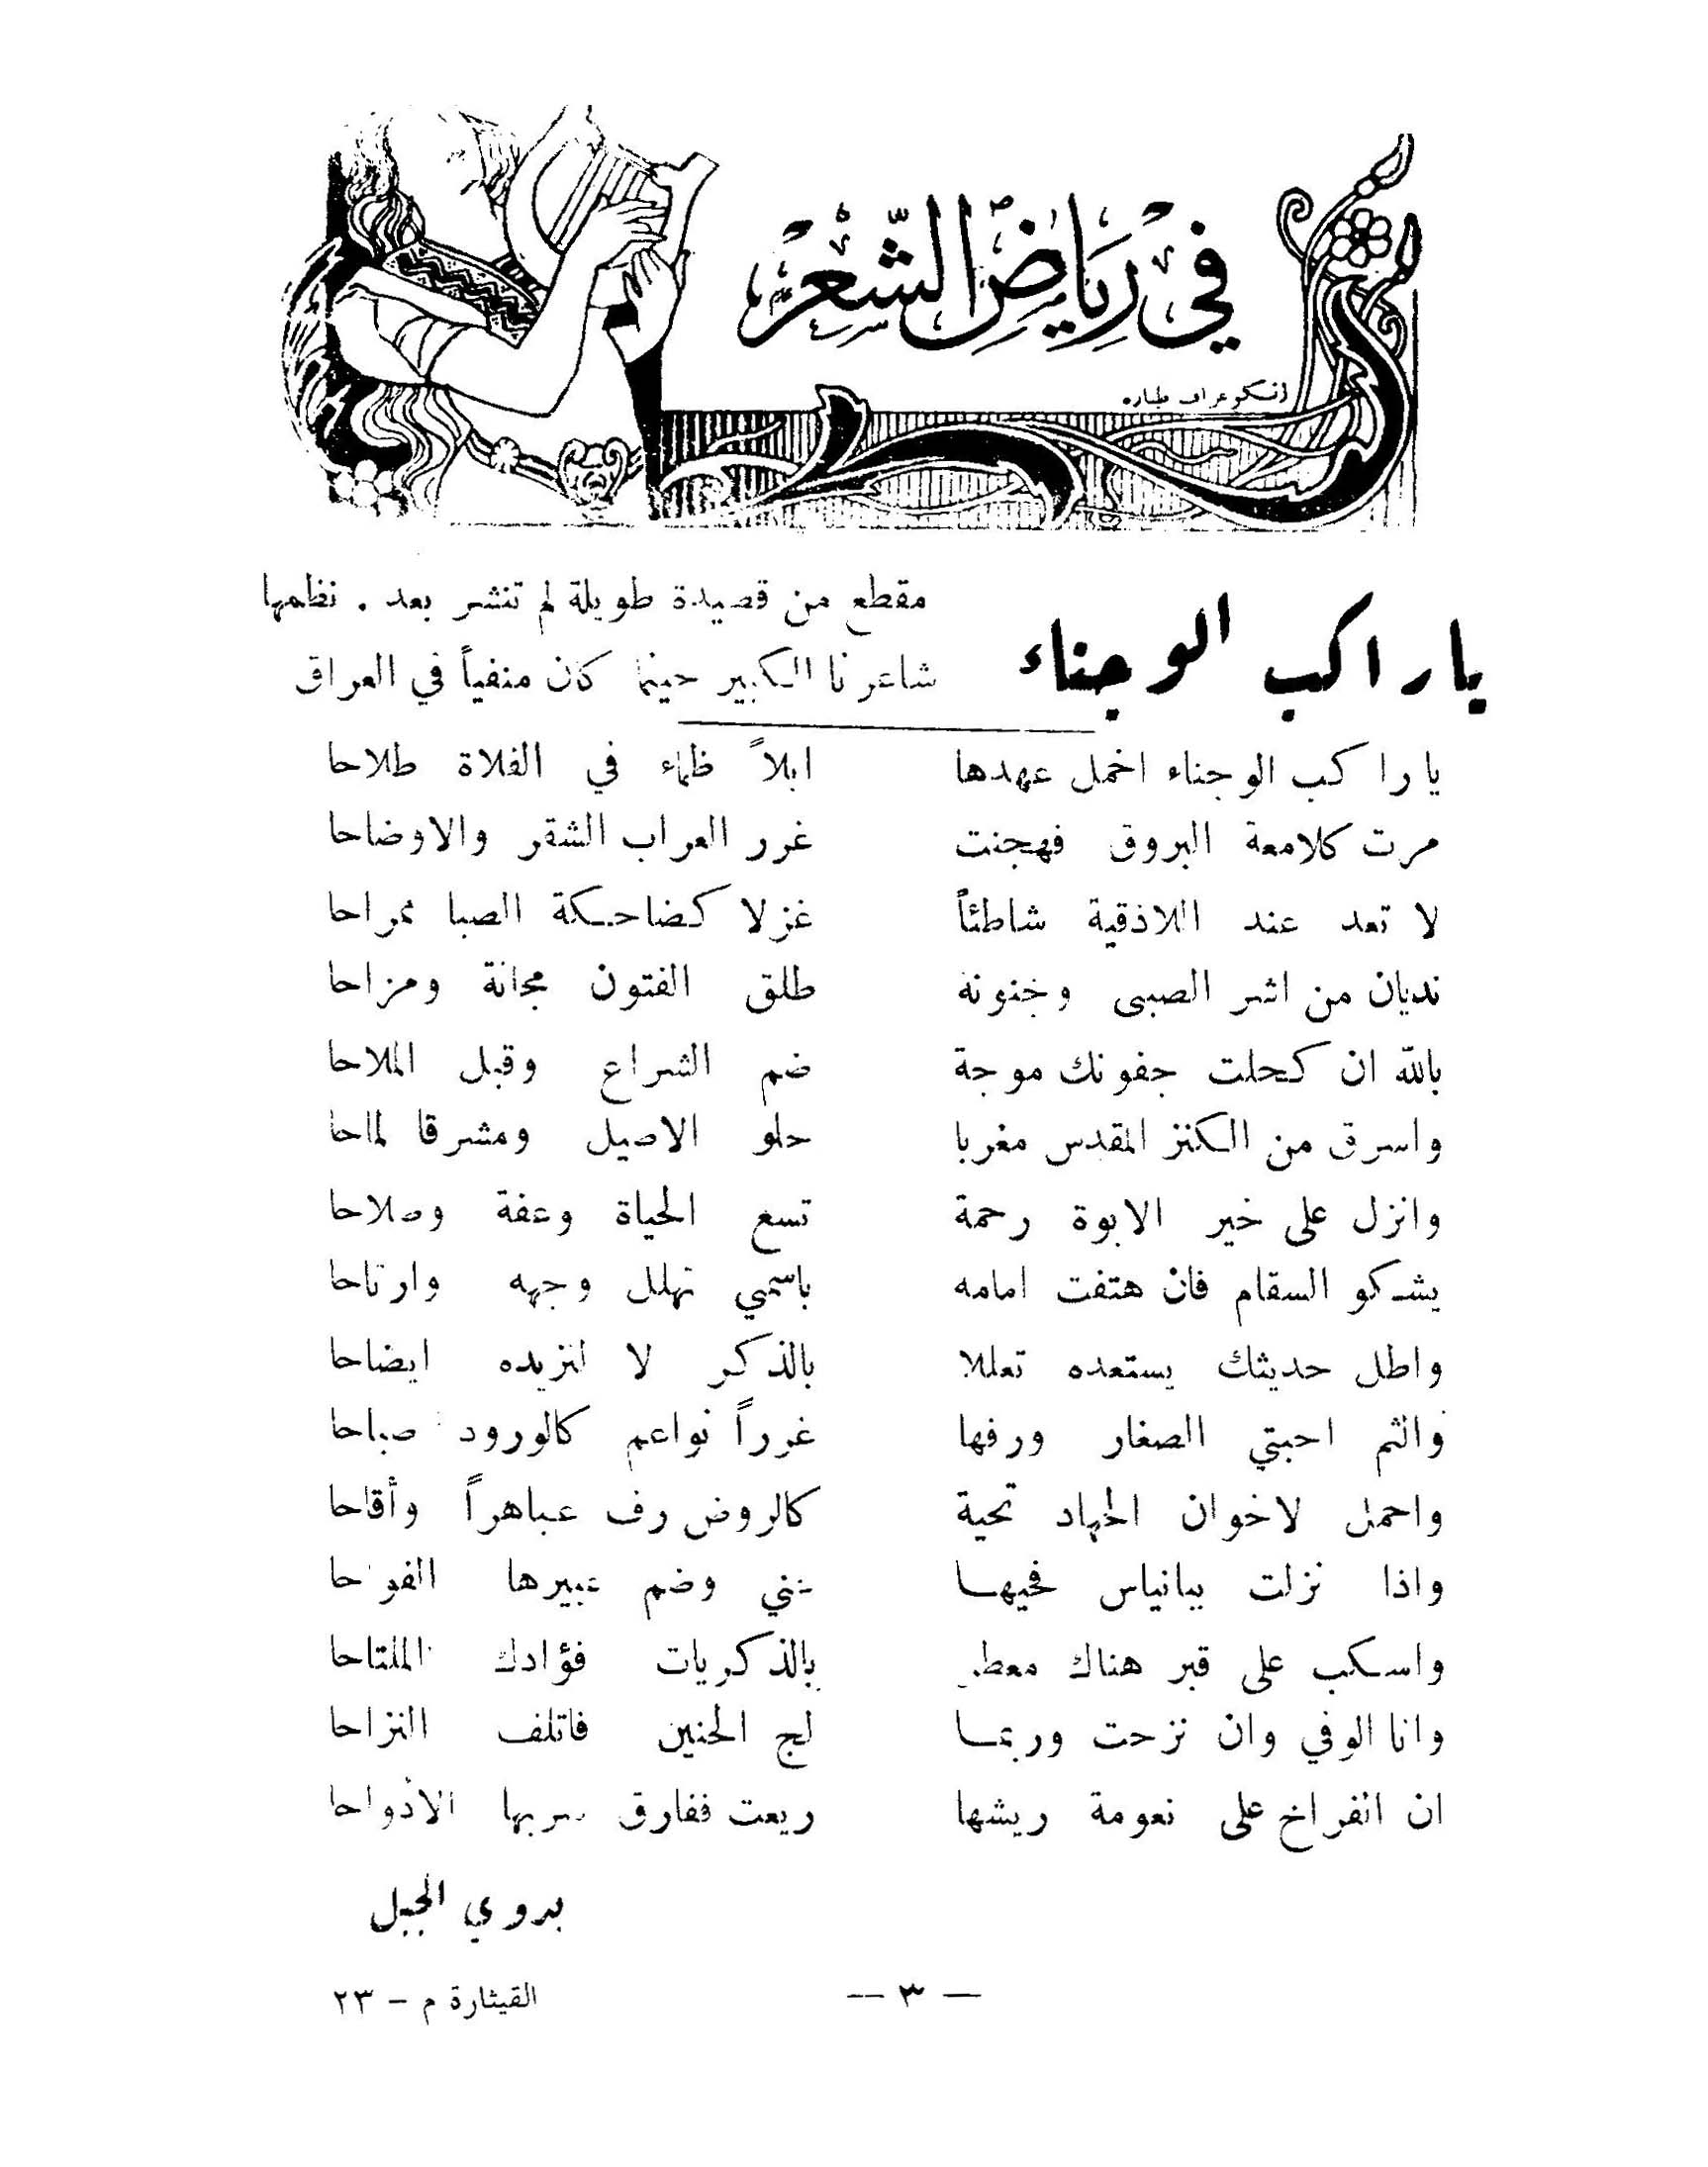 في رياض الشعر
يا راكب الوجناء
مقطع من قصيدة طويلة لم تنشر بعد . نظمها
شاعرنا الكبير حينما كان منفياً في العراق
يا راكب الوجناء اخمل عهدها ابلاً ظماء في الفلاة طلاحا
مرت كلامعة البروق فهجنت غرر العراب الشقر والاوضاحا
لا تعد عند اللاذقية شاطئاً غزلا كضاحكة الصبا ممراحا
نديان من اشر الصبى وخنونه طلق الفتون مجانة ومزاحا
بالله ان كحلت جفونك موجة ضم الشراع وقبل الملاحا
واسرق من الكنز المقدس مغربا حلو الاصيل ومشرقا لماحا
وانزل على خير الابوة رحمة تسع الحياة وعفة وصلاحا
يشكو السقام فان هتفت امامه باسمي تهلل وجهه وارتاحا
واطل حديثك يستعده تعللا بالذكر لا لتزيده ايضاحا
والثم احبتي الصغار ورفها غرراً نواعم كالورود صباحا
واحمل لاخوان الجهاد تحية كالروض رف عباهراً وأقاحا
واذا نزلت ببانياس فحيها عني وضم عبيرها الفواحا
واسكب على قبر هناك معطر بالذكريات فؤادك الملتاحا
وانا الوفي وان نزحت وربما لج الحنين فاتلف النزاحا
ان الفراخ على نعومة ريشها ريعت ففارق سربها الادواحا
بدوي الجبل
— ٣ —
القيثارة م – ٢٣